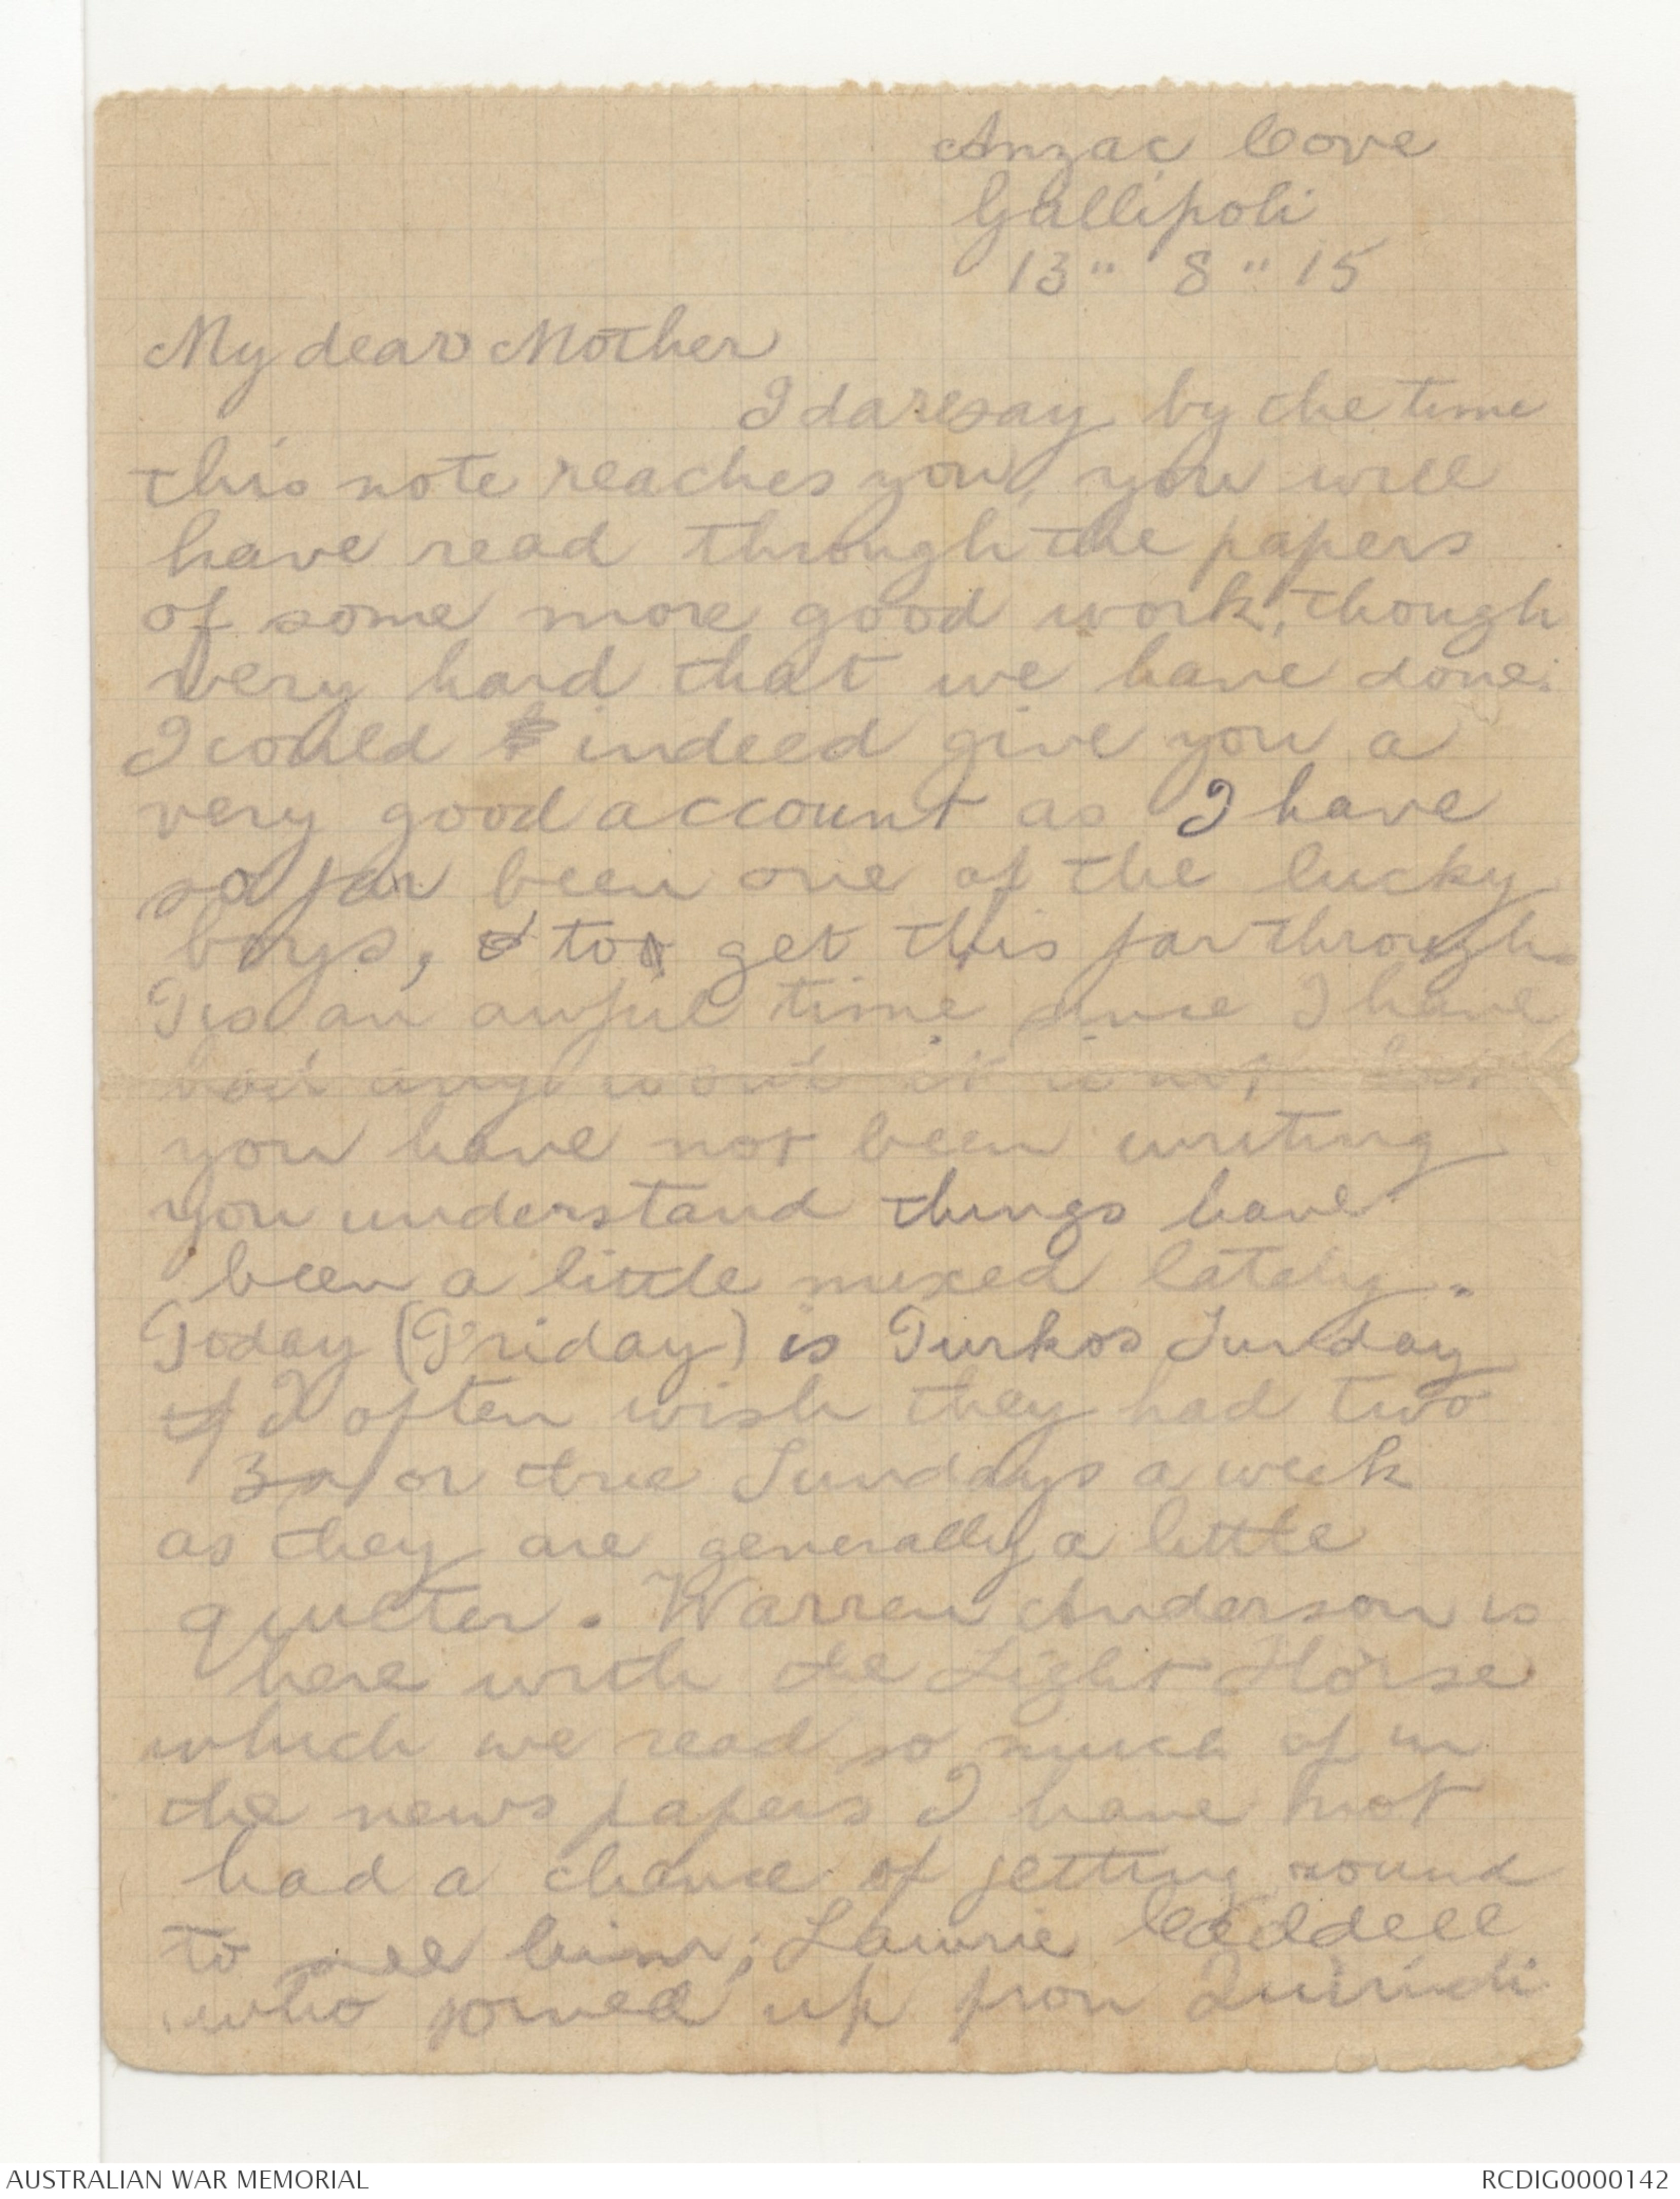 Anzac Cove
Gallipoli
13" 8" 15
My dear Mother
I daresay by the time
this note reaches you, you will
have read through the papers
of some more good work, though
very hard that we have done.
I could indeed give you a
very good account as I have
so far been one of the lucky
boys, to get this far through.
Tis an awful time since I have
had any word it is not
you have not been writing
you understand things have
been a little mixed lately.
Today (Friday) is Turkos Sunday
I often wish they had two
or Sundays a week
as they are generally a little
quieter. Warren Anderson is
here with the Light Horse
which we read so much of in
the news papers I have not
had a chance of getting round
to see him; Lawrie
who joined up from Quirindi
AUSTRALIAN WAR MEMORIAL
RCDIG0000142